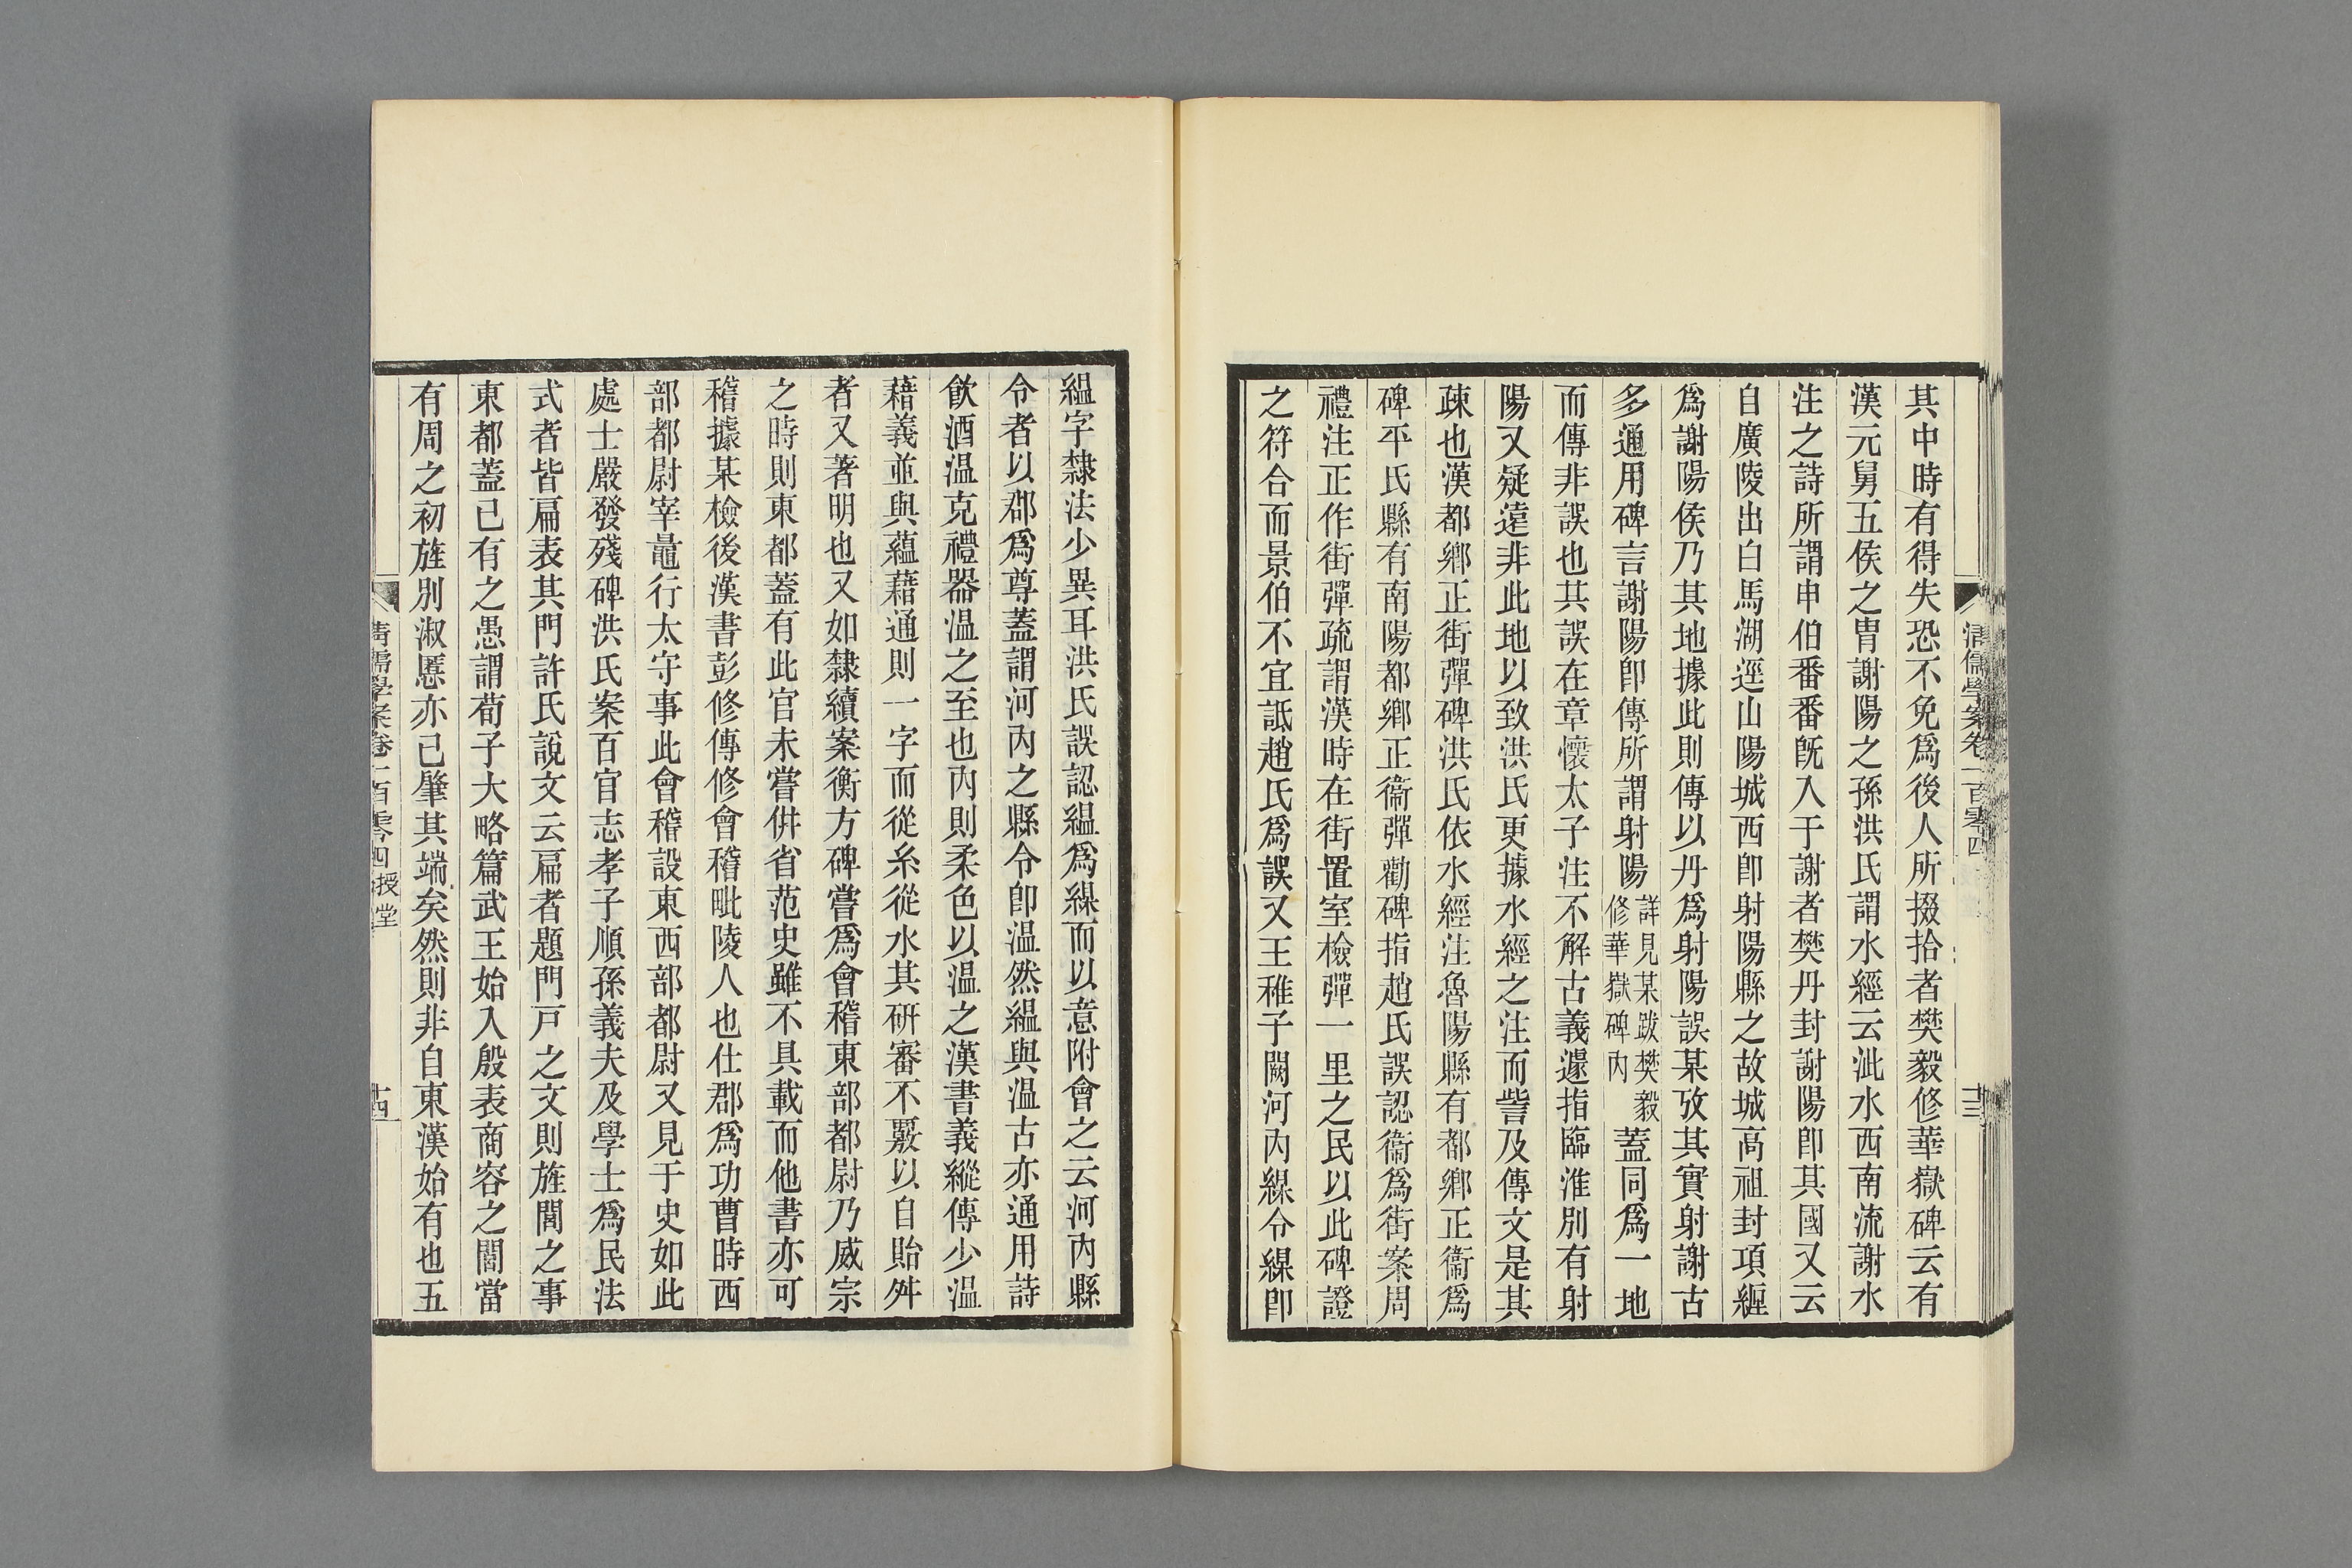 其中時有得失恐不免爲後人所掇拾者樊毅修華嶽碑云有
漢元舅五侯之冑謝陽之孫洪氏謂水經云泚水西南流謝水
注之詩所謂申伯番番旣入于謝者樊丹封謝陽卽其國又云
自廣陵出白馬湖逕山陽城西卽射陽縣之故城高祖封項纏
爲謝陽侯乃其地據此則傳以丹爲射陽誤某攷其實射謝古
多通用碑言謝陽卽傳所謂射陽詳見某跋樊毅修華嶽碑內蓋同爲一地
而傳非誤也其誤在章懷太子注不解古義遽指臨淮別有射
陽又疑遠非此地以致洪氏更據水經之注而訾及傳文是其
疎也漢都鄉正街彈碑洪氏依水經注魯陽縣有都鄉正衞爲
碑平氏縣有南陽都鄉正衞彈勸碑指趙氏誤認衞爲街案周
禮注正作街彈疏謂漢時在街置室檢彈一里之民以此碑證
之符合而景伯不宜詆趙氏爲誤又王稚子闕河內緜令緜卽
縕字隸法少異耳洪氏誤認縕爲緜而以意附會之云河內縣
令者以郡爲尊蓋謂河內之縣令卽温然縕與温古亦通用詩
飲酒温克禮器温之至也內則柔色以温之漢書義縱傳少温
藉義並與蘊藉通則一字而從糸從水其研審不覈以自貽舛
者又著明也又如隸續案衡方碑嘗爲會稽東部都尉乃威宗
之時則東都蓋有此官未嘗併省范史雖不具載而他書亦可
稽據某檢後漢書彭修傳修會稽毗陵人也仕郡爲功曹時西
部都尉宰鼂行太守事此會稽設東西部都尉又見于史如此
處士嚴發殘碑洪氏案百官志孝子順孫義夫及學士爲民法
式者皆扁表其門許氏說文云扁者題門戸之文則旌閭之事
東都蓋已有之愚謂荀子大略篇武王始入殷表商容之閭當
有周之初旌別淑慝亦已肇其端矣然則非自東漢始有也五
清儒學案卷一百零四
十三
清儒學案卷一百零四 授堂
十四